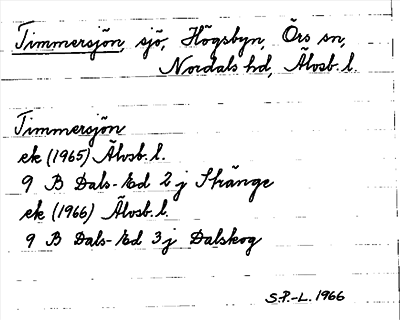 Timmersjön, sjö, Högsbyn, Örs sn,
Nordals hd, Älvsb. l.
Timmersjön
ek (1965) Älvsb. l.
9 B Dals-Ed 2 j Stränge
ek (1966) Älvsb. l.
9 B Dals-Ed 3 j Dalskog
S.P.-L. 1966